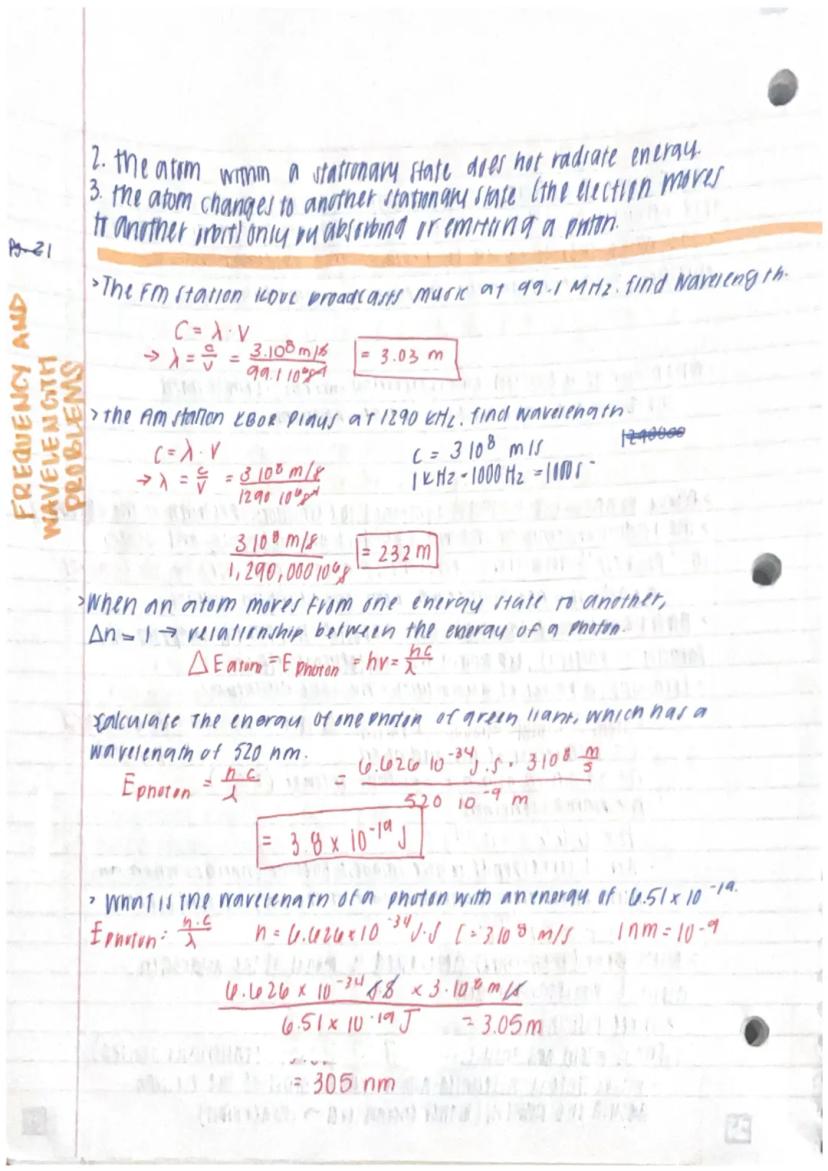 2. the atom within a stationary state does not radiate energy.
3. the atom changes to another stationary state (the election moves
to another orbit) only by absorbing or emitting a photon.
Pg. 21
FREQUENCY AND
WAVELENGTH
PROBLEMS
> The FM station KOVE broadcasts music at 99.1 MHz. find wavelength.
C = λ · V
→ λ = c/v = 3.10⁸ m/s / 99.1 10⁶ s⁻¹ = 3.03 m
> the AM station KBOR plays at 1290 kHz. find wavelength.
1290000
C = λ · V
C = 3 10⁸ m/s
→ λ = c/v = 3 10⁸ m/s / 1290 10⁶ s⁻¹
1 kHz = 1000 Hz = 1000 s⁻
3 10⁸ m/s / 1,290,000 10⁶ s = 232 m
> When an atom moves from one energy state to another,
Δn = 1 → relationship between the energy of a photon.
Δ E atom = E photon = hv = hc/λ
Calculate the energy of one photon of green light, which has a
wavelength of 520 nm.
E photon = h.c/λ = 6.626 10⁻³⁴ J.s · 3 10⁸ m/s / 520 10⁻⁹ m
= 3.8 x 10⁻¹⁹ J
> What is the wavelength of a photon with an energy of 6.51 x 10⁻¹⁹.
E photon = h.c/λ h = 6.626 x 10⁻³⁴ J.s C = 3.10⁸ m/s 1 nm = 10⁻⁹
6.626 x 10⁻³⁴ J.s x 3.10⁸ m/s / 6.51 x 10⁻¹⁹ J = 3.05 m
= 305 nm